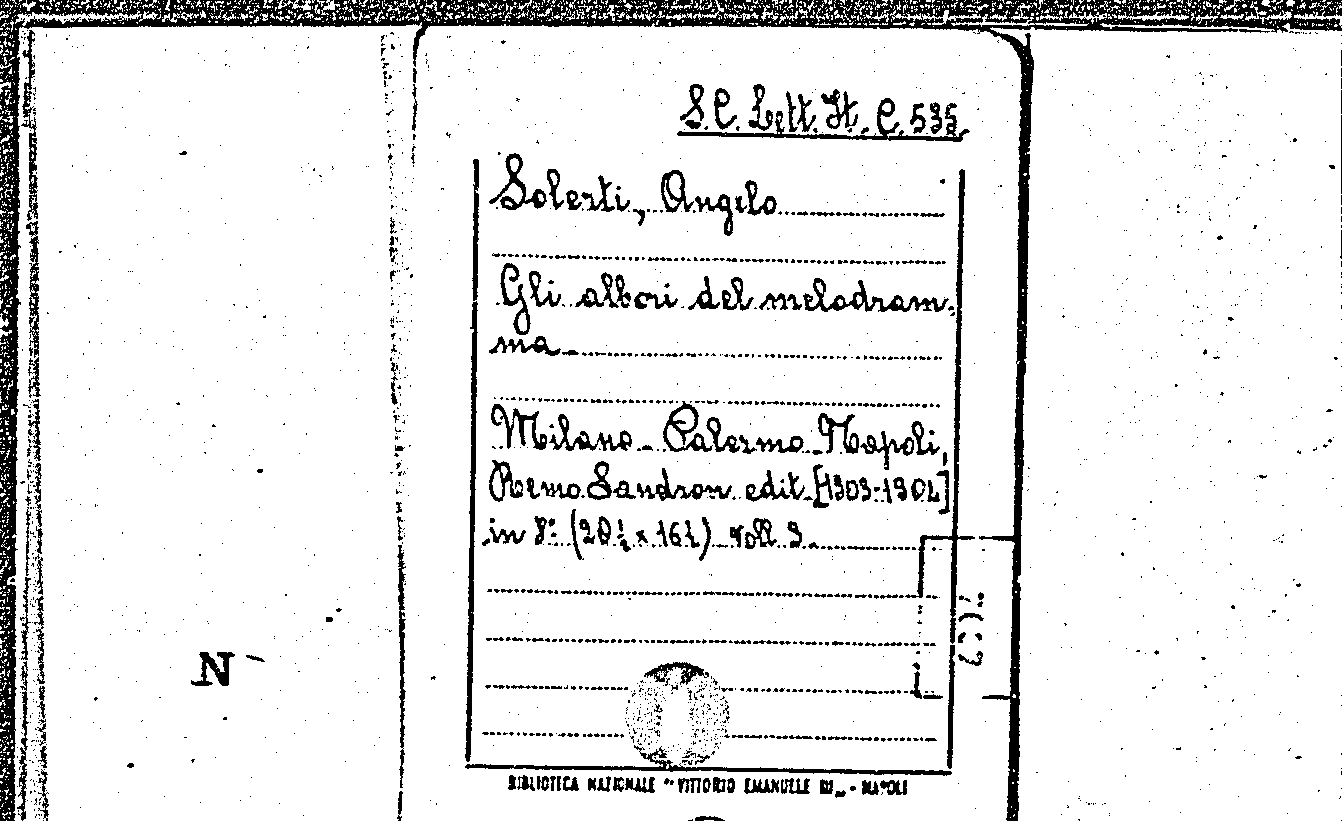 S.C. Lett. It. C. 535.
Solerti, Angelo
Gli albori del melodram-
ma.
Milano - Palermo - Napoli,
Remo Sandron edit. [1903-1904]
in 8° (20½ x 16½) voll 3.
N
BIBLIOTECA NAZIONALE "VITTORIO EMANUELE III„ - NAPOLI